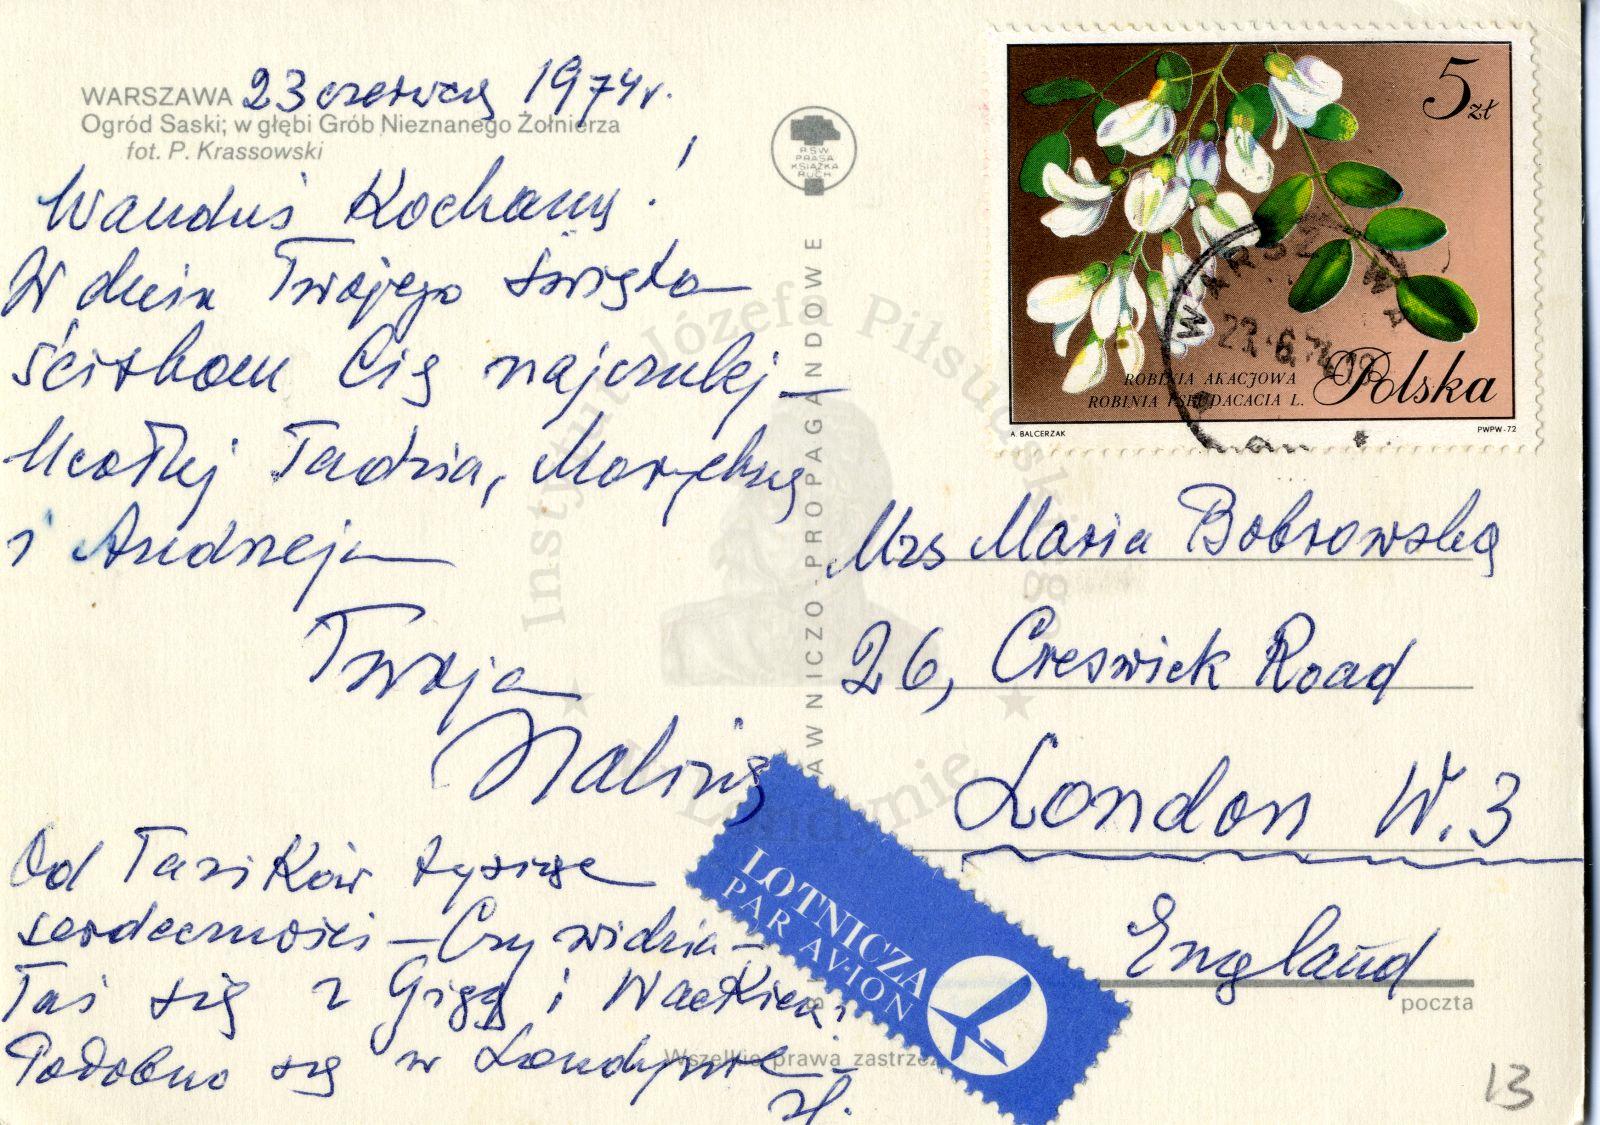 WARSZAWA 23 czerwca 1974 r.
Ogród Saski; w głębi Grób Nieznanego Żołnierza
fot. P. Krassowski
Wanduś Kochany!
W dniu Twojego Święta
ściskam Cię najczulej —
Ucałuj Tadzia,
i Andrzeja —
Twoja
Halina
Od Tazików tysiące
serdeczności — Czy widzia-
łaś się z Gigą i Wackiem,
Podobno są w Londynie —
H.
RSW
PRASA
KSIĄŻKA
RUCH
AWNICZO-PROPAGANDOWE
5 zł
ROBINIA AKACJOWA
ROBINIA PSEUDACACIA L.
Polska
A. BALCERZAK
PWPW-72
WARSZAWA
23.6.74
Mrs Maria Bobrowska
26, Creswick Road
London W.3
England
poczta
LOTNICZA
PAR AVION
Wszelkie prawa zastrzeż
Instytut Józefa Piłsudskiego
w Londynie
13